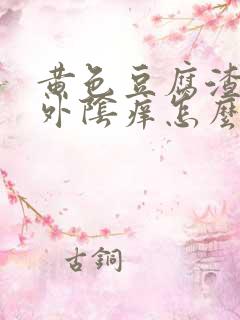 黄色豆腐渣
外陰痒怎麼
古銅